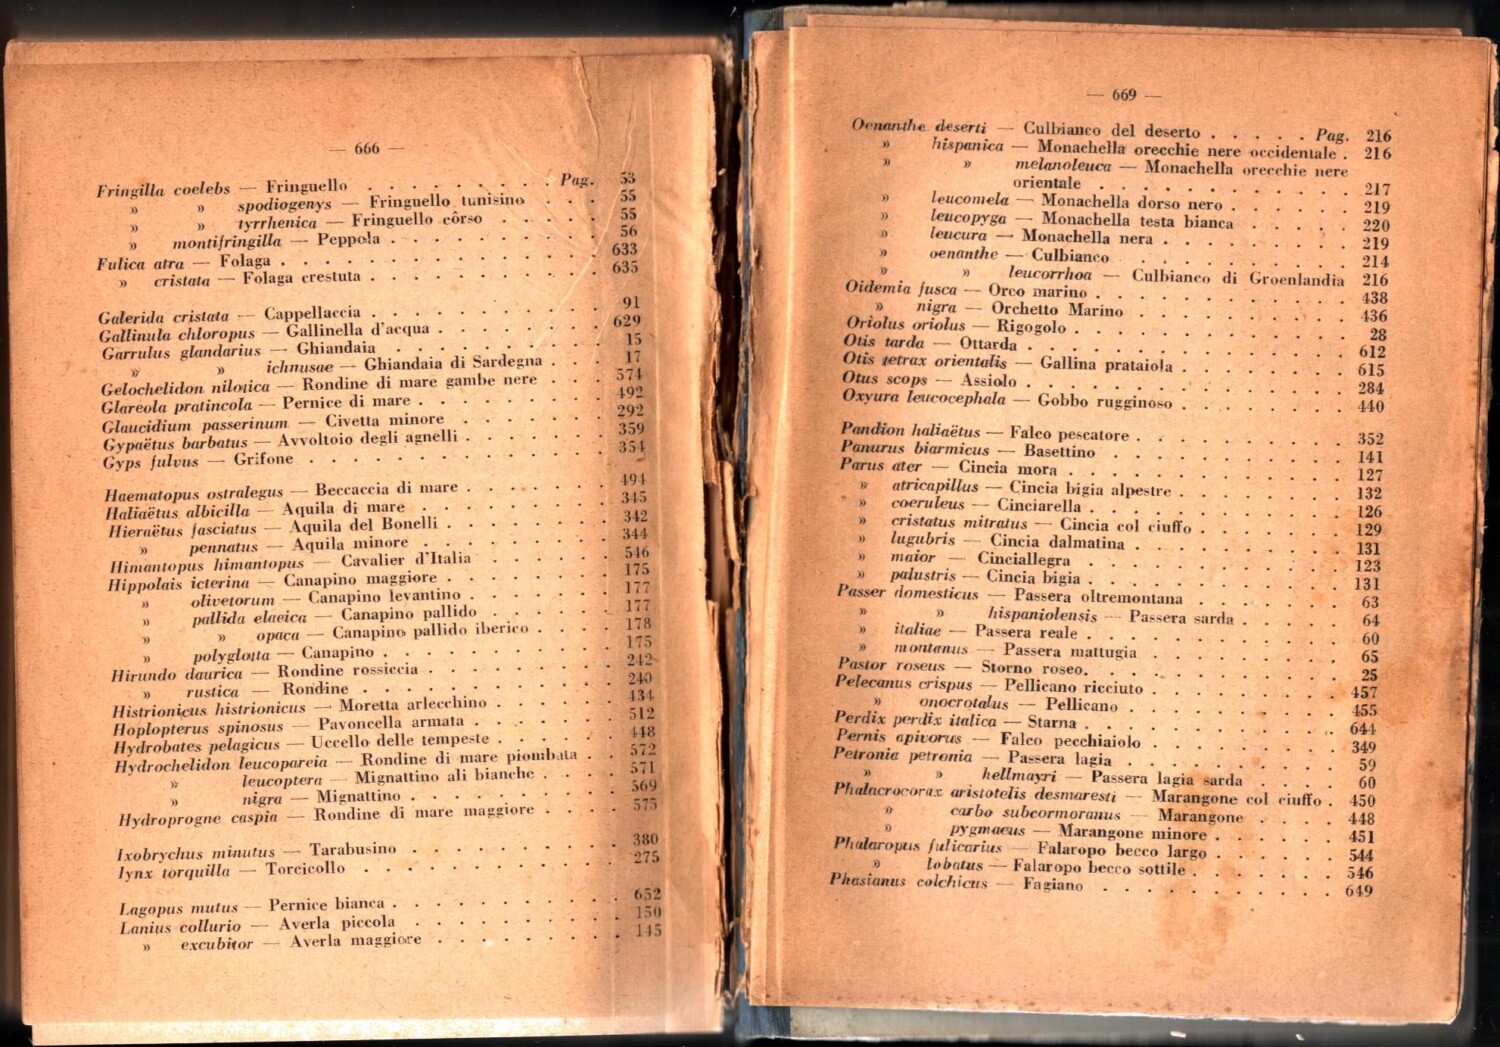 — 666 —
Fringilla coelebs — Fringuello . . . . . . . . . Pag. 53
» » spodiogenys — Fringuello tunisino . . . 55
» » tyrrhenica — Fringuello côrso . . . . . 55
» montifringilla — Peppola . . . . . . . . . . 56
Fulica atra — Folaga . . . . . . . . . . . . . . . 633
» cristata — Folaga crestuta . . . . . . . . . . 635
Galerida cristata — Cappellaccia . . . . . . . . . . 91
Gallinula chloropus — Gallinella d'acqua . . . . . . . 629
Garrulus glandarius — Ghiandaia . . . . . . . . . 15
» » ichnusae — Ghiandaia di Sardegna . . . 17
Gelochelidon nilotica — Rondine di mare gambe nere . . . 574
Glareola pratincola — Pernice di mare . . . . . . . . 492
Glaucidium passerinum — Civetta minore . . . . . . . 292
Gypaëtus barbatus — Avvoltoio degli agnelli . . . . . . 359
Gyps fulvus — Grifone . . . . . . . . . . . . . 354
Haematopus ostralegus — Beccaccia di mare . . . . . . 494
Haliaëtus albicilla — Aquila di mare . . . . . . . . 345
Hieraëtus fasciatus — Aquila del Bonelli . . . . . . . 342
» pennatus — Aquila minore . . . . . . . . 344
Himantopus himantopus — Cavalier d'Italia . . . . . . 546
Hippolais icterina — Canapino maggiore . . . . . . . 175
» olivetorum — Canapino levantino . . . . . . 177
» pallida elaeica — Canapino pallido . . . . . 177
» » opaca — Canapino pallido iberico . . . . 178
» polyglotta — Canapino . . . . . . . . . . 175
Hirundo daurica — Rondine rossiccia . . . . . . . . 242
» rustica — Rondine . . . . . . . . . . . 240
Histrionicus histrionicus — Moretta arlecchino . . . . . 434
Hoplopterus spinosus — Pavoncella armata . . . . . . 512
Hydrobates pelagicus — Uccello delle tempeste . . . . . 448
Hydrochelidon leucopareia — Rondine di mare piombata . . 572
» leucoptera — Mignattino ali bianche . . . . 571
» nigra — Mignattino . . . . . . . . . 569
Hydroprogne caspia — Rondine di mare maggiore . . . . 575
Ixobrychus minutus — Tarabusino . . . . . . . . . 380
Iynx torquilla — Torcicollo . . . . . . . . . . . 275
Lagopus mutus — Pernice bianca . . . . . . . . . . 652
Lanius collurio — Averla piccola . . . . . . . . . 150
» excubitor — Averla maggiore . . . . . . . . 145
— 669 —
Oenanthe deserti — Culbianco del deserto . . . . . Pag. 216
» hispanica — Monachella orecchie nere occidentale . 216
» » melanoleuca — Monachella orecchie nere
orientale . . . . . . . . . . . . 217
» leucomela — Monachella dorso nero . . . . . . 219
» leucopyga — Monachella testa bianca . . . . . 220
» leucura — Monachella nera . . . . . . . . . 219
» oenanthe — Culbianco . . . . . . . . . . 214
» » leucorrhoa — Culbianco di Groenlandia 216
Oidemia fusca — Orco marino . . . . . . . . . . . 438
» nigra — Orchetto Marino . . . . . . . . . 436
Oriolus oriolus — Rigogolo . . . . . . . . . . . . 28
Otis tarda — Ottarda . . . . . . . . . . . . . . 612
Otis tetrax orientalis — Gallina prataiola . . . . . . . 615
Otus scops — Assiolo . . . . . . . . . . . . . . 284
Oxyura leucocephala — Gobbo rugginoso . . . . . . . 440
Pandion haliaëtus — Falco pescatore . . . . . . . . . 352
Panurus biarmicus — Basettino . . . . . . . . . . 141
Parus ater — Cincia mora . . . . . . . . . . . . 127
» atricapillus — Cincia bigia alpestre . . . . . . . 132
» coeruleus — Cinciarella . . . . . . . . . . . 126
» cristatus mitratus — Cincia col ciuffo . . . . . . 129
» lugubris — Cincia dalmatina . . . . . . . . . 131
» maior — Cinciallegra . . . . . . . . . . . 123
» palustris — Cincia bigia . . . . . . . . . . . 131
Passer domesticus — Passera oltremontana . . . . . . . 63
» » hispaniolensis — Passera sarda . . . . . 64
» italiae — Passera reale . . . . . . . . . . . 60
» montanus — Passera mattugia . . . . . . . . 65
Pastor roseus — Storno roseo. . . . . . . . . . . . 25
Pelecanus crispus — Pellicano ricciuto . . . . . . . . 457
» onocrotalus — Pellicano . . . . . . . . . 455
Perdix perdix italica — Starna . . . . . . . . . . . 644
Pernis apivorus — Falco pecchiaiolo . . . . . . . . . 349
Petronia petronia — Passera lagia . . . . . . . . . 59
» » hellmayri — Passera lagia sarda . . . . 60
Phalacrocorax aristotelis desmaresti — Marangone col ciuffo . 450
» carbo subcormoranus — Marangone . . . . 448
» pygmaeus — Marangone minore . . . . . . 451
Phalaropus fulicarius — Falaropo becco largo . . . . . . 544
» lobatus — Falaropo becco sottile . . . . . . . 546
Phasianus colchicus — Fagiano . . . . . . . . . . 649